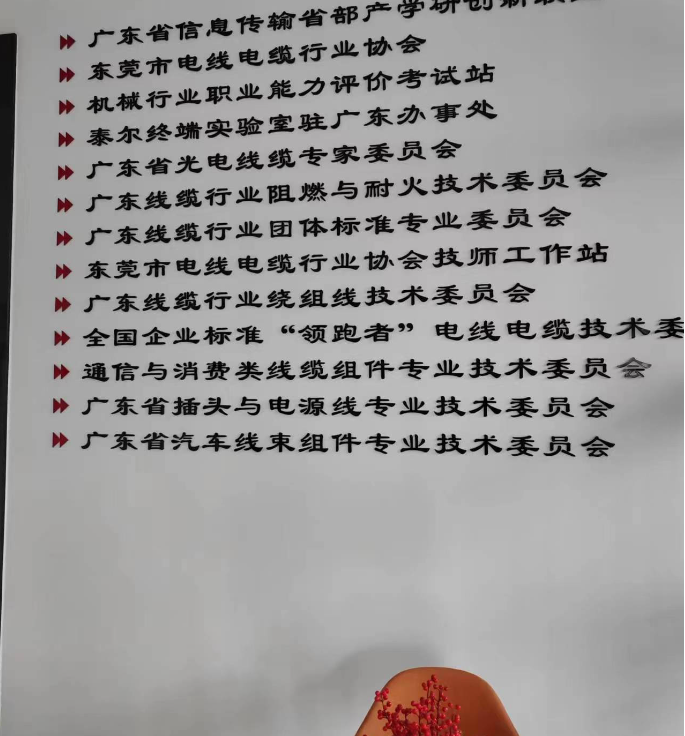 广东省信息传输省部产学研创新联
东莞市电线电缆行业协会
机械行业职业能力评价考试站
泰尔终端实验室驻广东办事处
广东省光电线缆专家委员会
广东线缆行业阻燃与耐火技术委员会
广东线缆行业团体标准专业委员会
东莞市电线电缆行业协会技师工作站
广东线缆行业绕组线技术委员会
全国企业标准“领跑者”电线电缆技术委
通信与消费类线缆组件专业技术委员会
广东省插头与电源线专业技术委员会
广东省汽车线束组件专业技术委员会